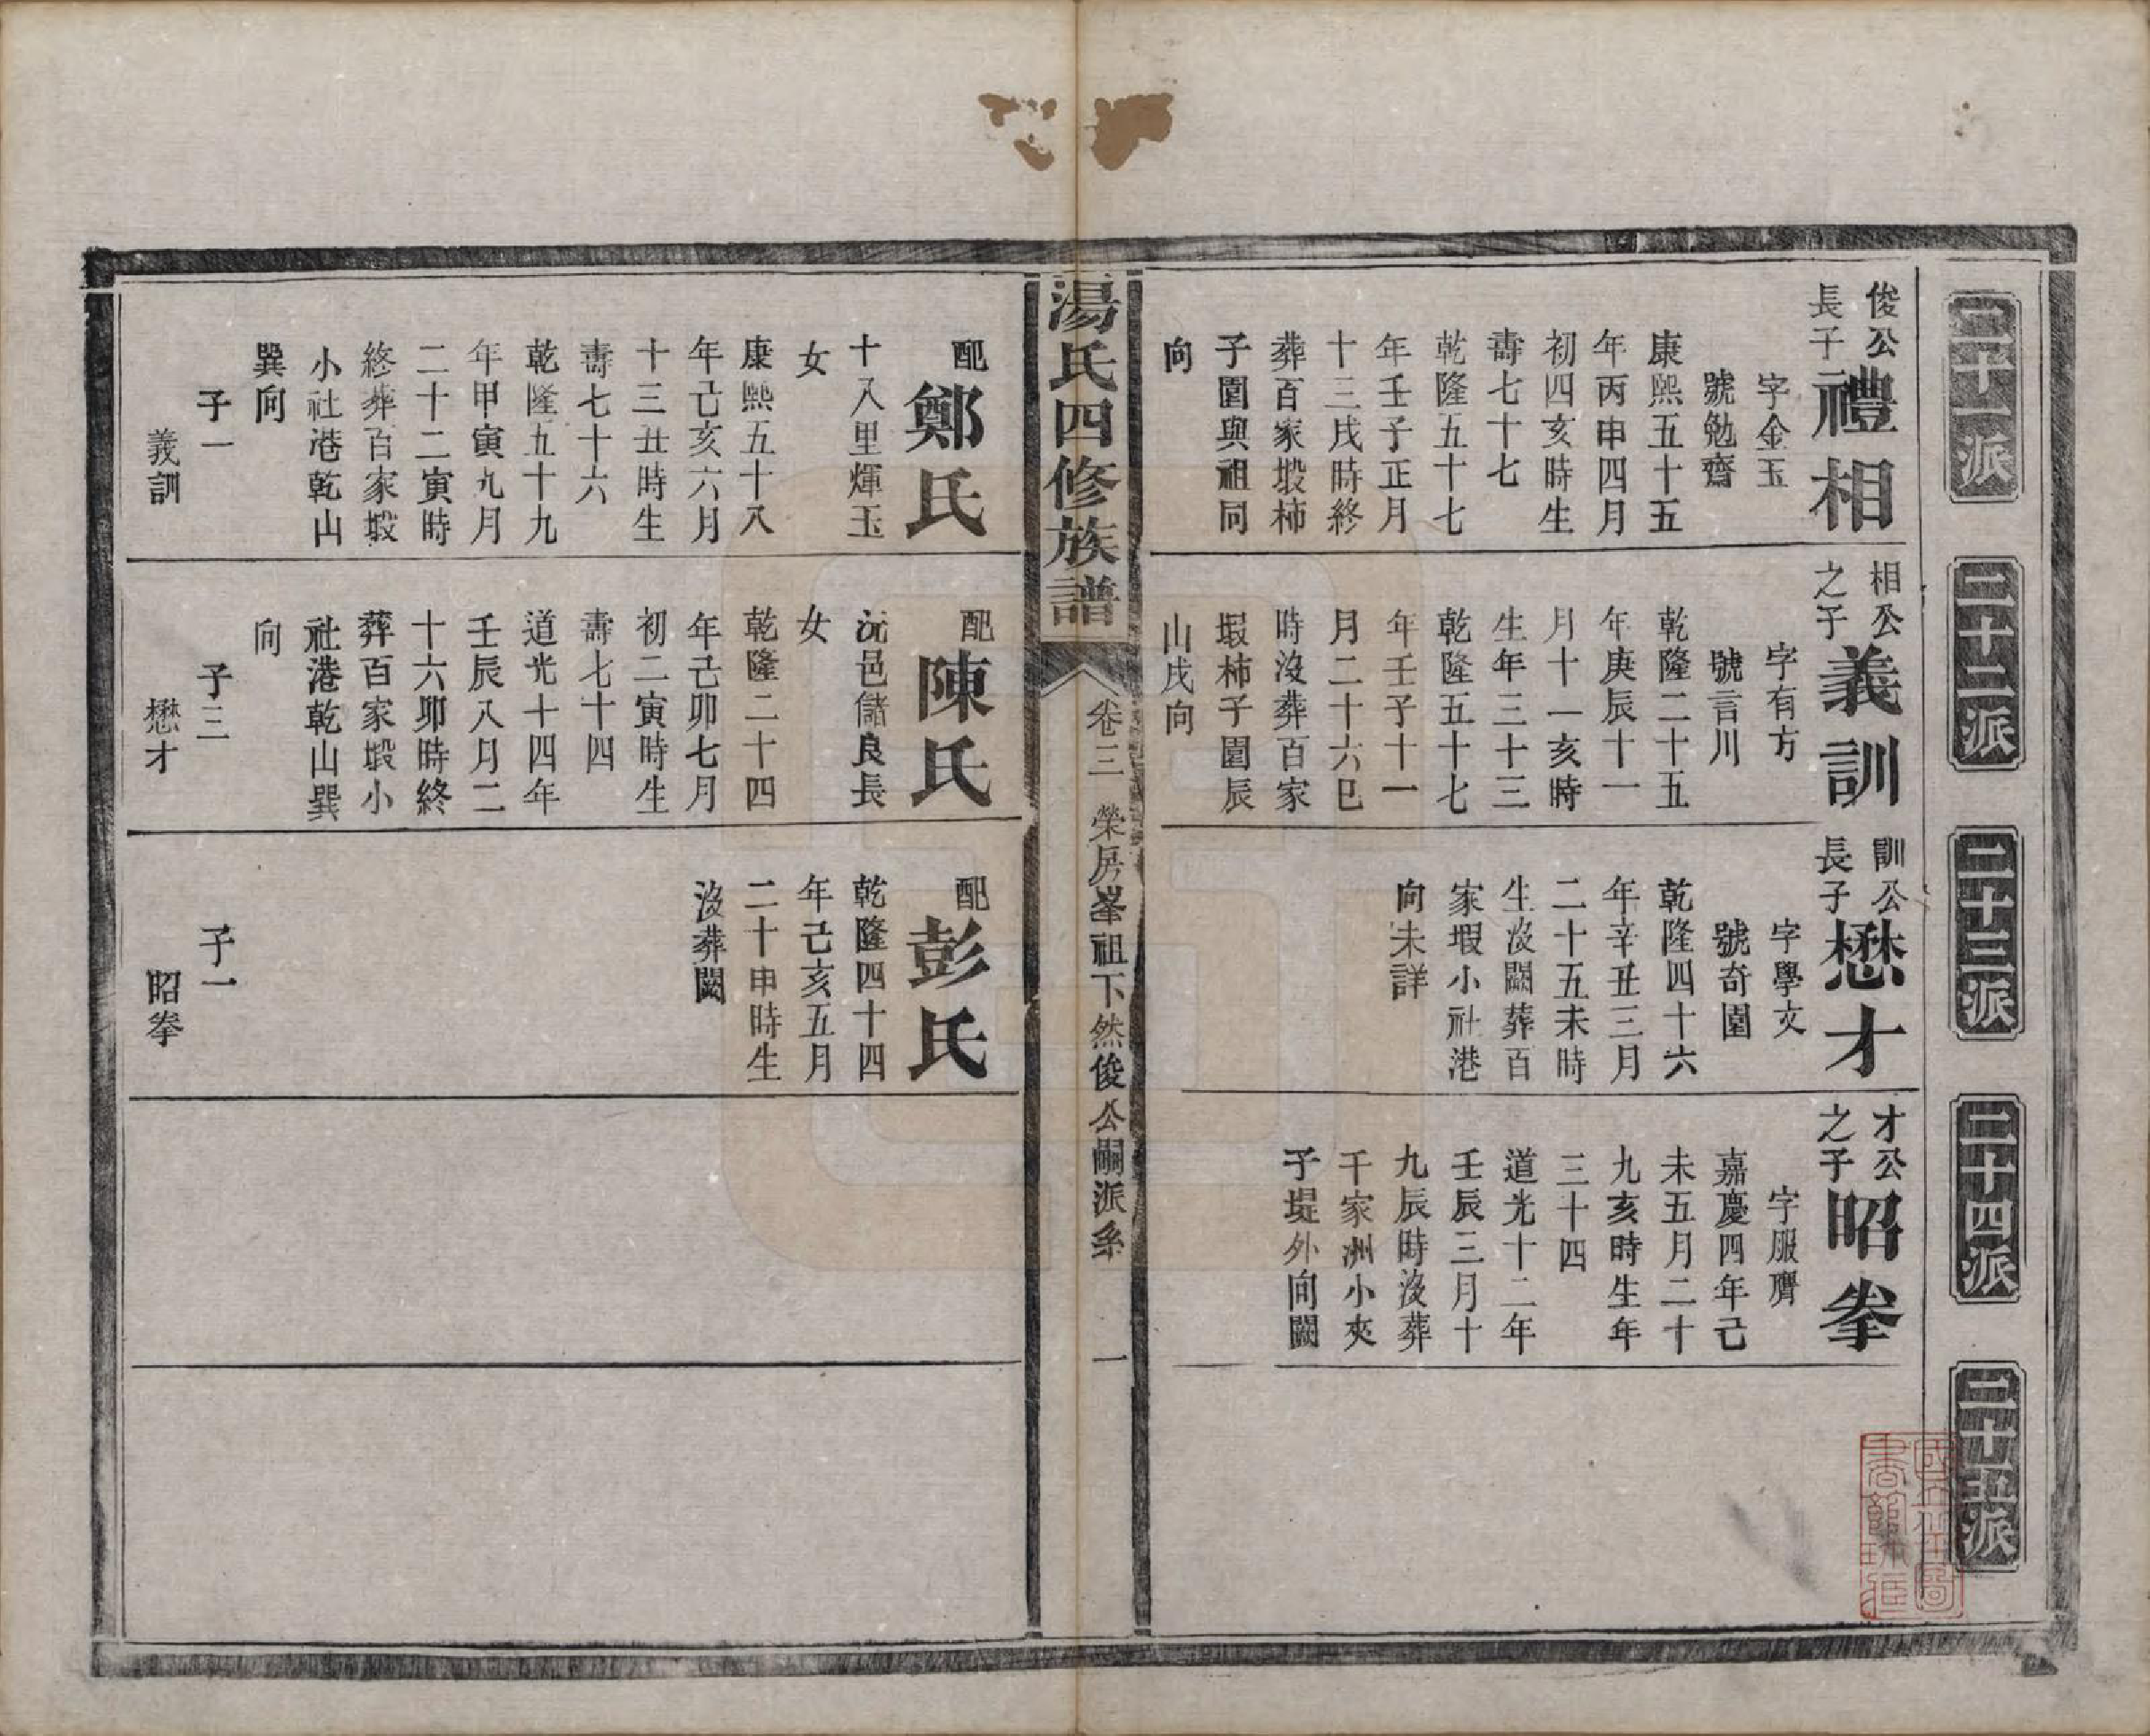 二十一派
二十二派
二十三派
二十四派
二十五派
俊公
長子
禮相
字金玉
號勉齋
康熙五十五
年丙申四月
初四亥時生
壽七十七
乾隆五十七
年壬子正月
十三戌時終
葬百家塅柿
子園與祖同
向
相公
之子
義訓
字有方
號言川
乾隆二十五
年庚辰十一
月十一亥時
生年三十三
乾隆五十七
年壬子十一
月二十六巳
時沒葬百家
塅柿子園辰
山戌向
訓公
長子
懋才
字學文
號奇園
乾隆四十六
年辛丑三月
二十五未時
生沒闕葬百
家塅小社港
向未詳
才公
之子
昭拳
字服膺
嘉慶四年己
未五月二十
九亥時生年
三十四
道光十二年
壬辰三月十
九辰時沒葬
千家洲小夾
子堤外向闕
湯氏四修族譜
卷三
榮房峯祖下然俊公嗣派系
一
配
鄭氏
十八里煇玉
女
康熙五十八
年己亥六月
十三丑時生
壽七十六
乾隆五十九
年甲寅九月
二十二寅時
終葬百家塅
小社港乾山
巽向
子一
義訓
配
陳氏
沅邑儲良長
女
乾隆二十四
年己卯七月
初二寅時生
壽七十四
道光十四年
壬辰八月二
十六卯時終
葬百家塅小
社港乾山巽
向
子三
懋才
配
彭氏
乾隆四十四
年己亥五月
二十申時生
沒葬闕
子一
昭拳
國立北平圖
書館珍藏